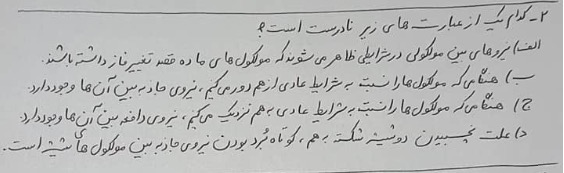 ۲- کدام یک از عبارت های زیر نادرست است؟
الف) نیروهای بین مولکولی در شرایطی ظاهر می شوند که مولکول های ماده قصد تغییر فاز داشته باشند.
ب) هنگامی که مولکول ها را نسبت به شرایط عادی از هم دور می کنیم، نیروی جاذبه بین آن ها وجود دارد.
ج) هنگامی که مولکول ها را نسبت به شرایط عادی به هم نزدیک می کنیم، نیروی دافعه بین آن ها وجود دارد.
د) علت نچسبیدن دو شیشه شکسته به هم، کوتاه بُرد بودن نیروی جاذبه بین مولکول های شیشه است.